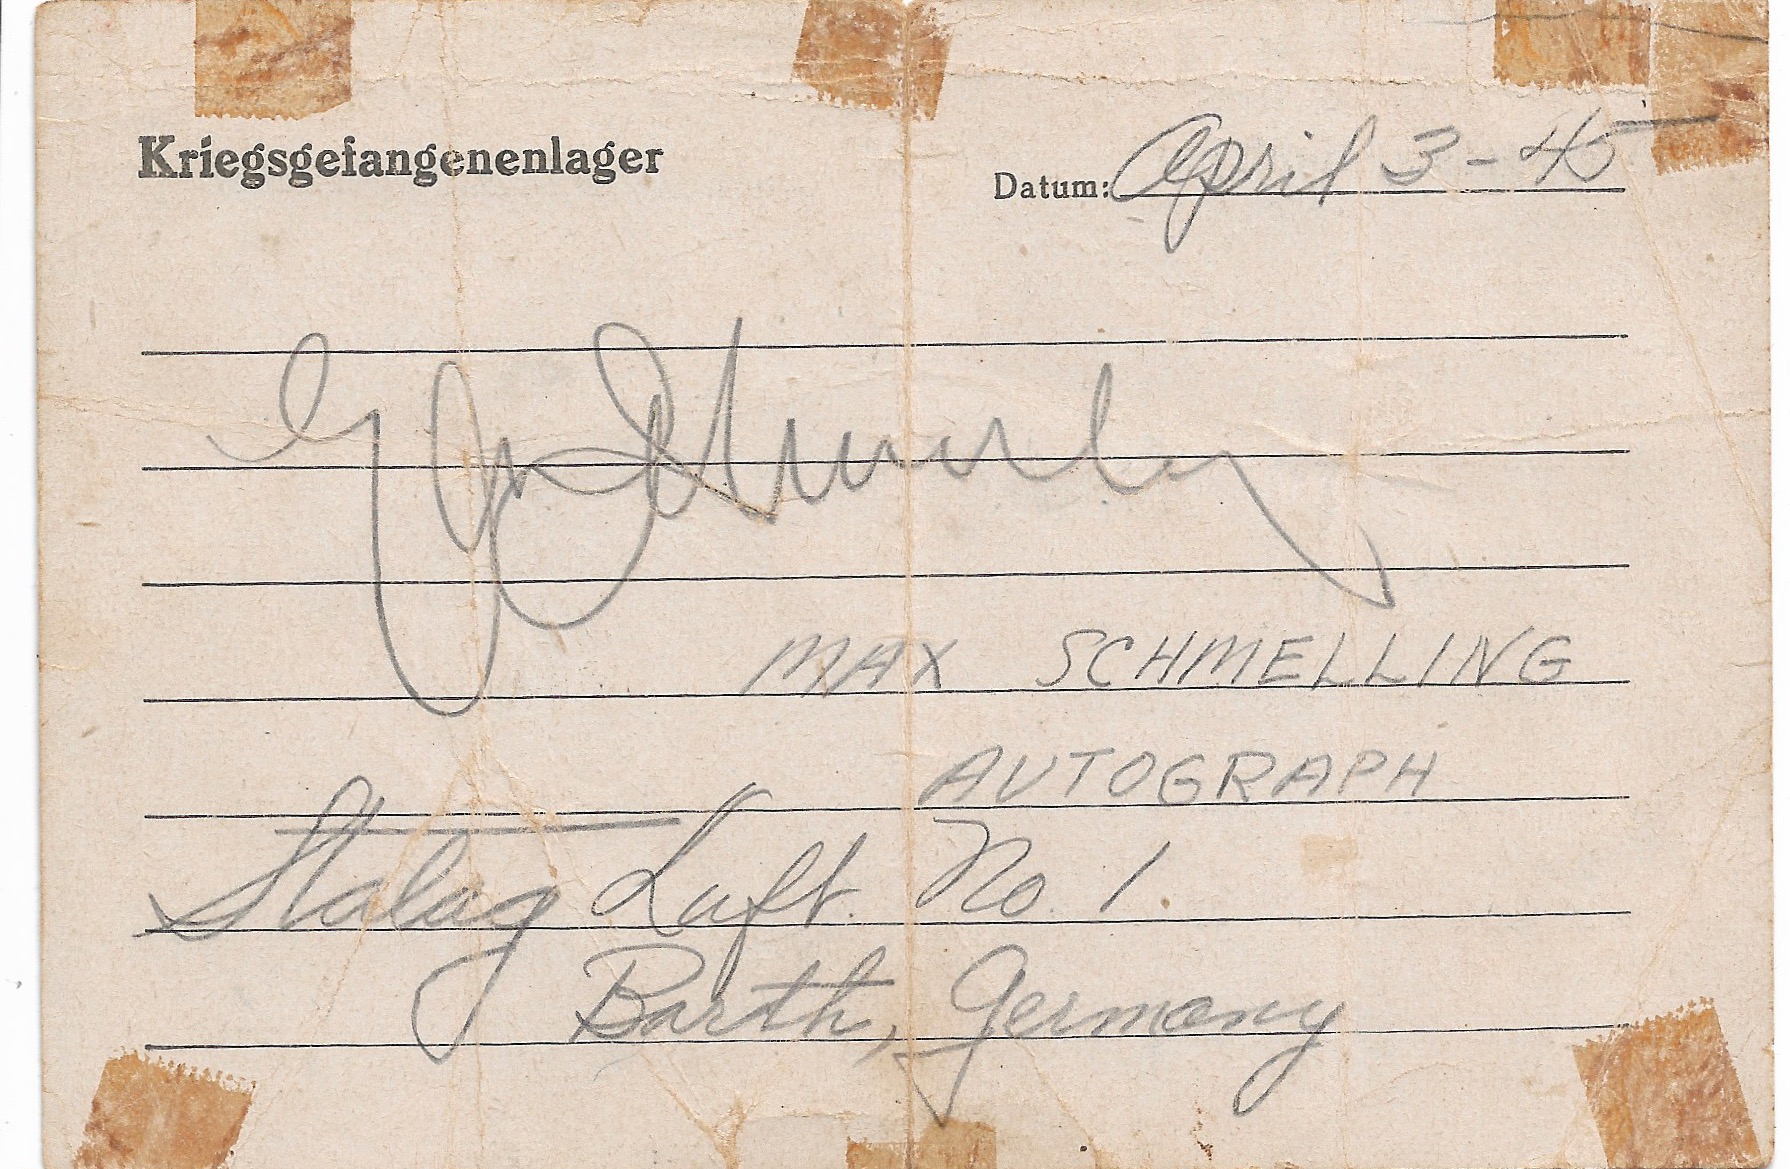 Kriegsgefangenenlager
Datum: April 3 - 45
MAX SCHMELLING
AUTOGRAPH
Stalag Luft. No. 1.
Barth, Germany